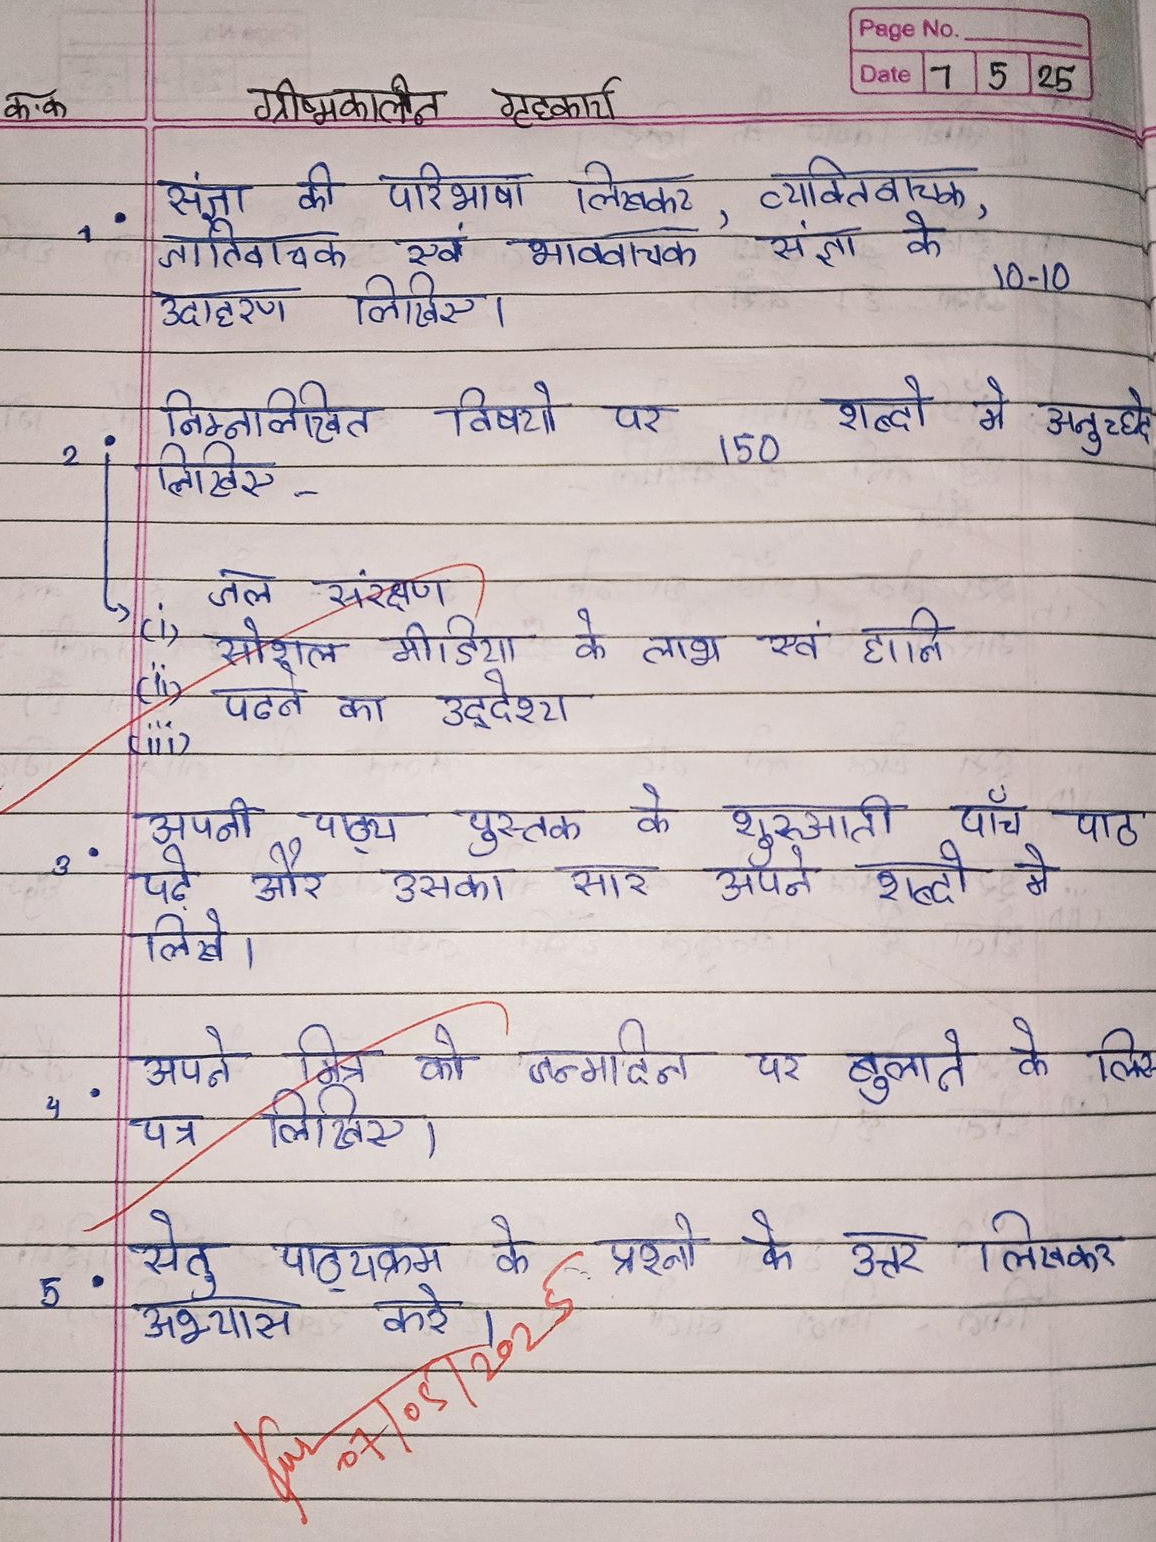 Page No.
Date 7 5 25
क.क ग्रीष्मकालीन गृहकार्य
1. संज्ञा की परिभाषा लिखकर, व्यक्तिवाचक,
जातिवाचक एवं भाववाचक संज्ञा के 10-10
उदाहरण लिखिए।
2. निम्नलिखित विषयो पर 150 शब्दो मे अनुच्छेद
लिखिए -
(i) जल संरक्षण
(ii) सोशल मीडिया के लाभ एवं हानि
(iii) पढने का उद्देश्य
3. अपनी पाठ्य पुस्तक के शुरुआती पाँच पाठ
पढ़े और उसका सार अपने शब्दो मे
लिखे।
4. अपने मित्र को जन्मदिन पर बुलाते के लिए
पत्र लिखिए।
5. सेतु पाठ्यक्रम के प्रश्नो के उत्तर लिखकर
अभ्यास करे।
07/05/2025